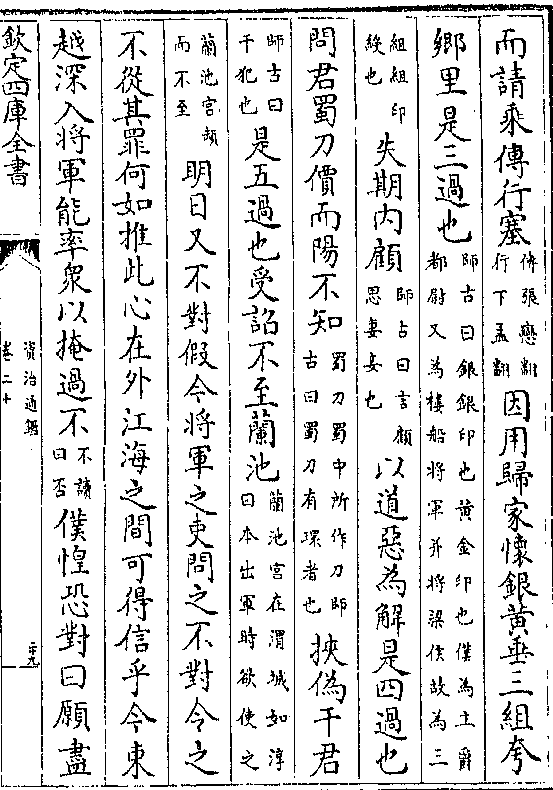 而請乗傳行塞傳張戀翻行下孟翻因用歸家懷銀黄垂三組夸
鄉里是三過也師古曰銀銀印也黄金印也僕為主爵都尉又為樓船將軍并將梁侯故為三
組組印綬也失期内顧師古曰言顧思妻妾也以道惡為解是四過也
問君蜀刀價而陽不知蜀刀蜀中所作刀師古曰蜀刀有環者也挾偽干君
師古曰干犯也是五過也受詔不至蘭池蘭池宫在渭城如淳曰本出軍時欲使之
蘭池宫頓而不至明日又不對假令將軍之吏問之不對令之
不從其罪何如推此心在外江海之間可得信乎今東
越深入將軍能率衆以掩過不不讀曰否僕惶恐對曰願盡
欽定四庫全書
資治通鑑
卷二十
二十九